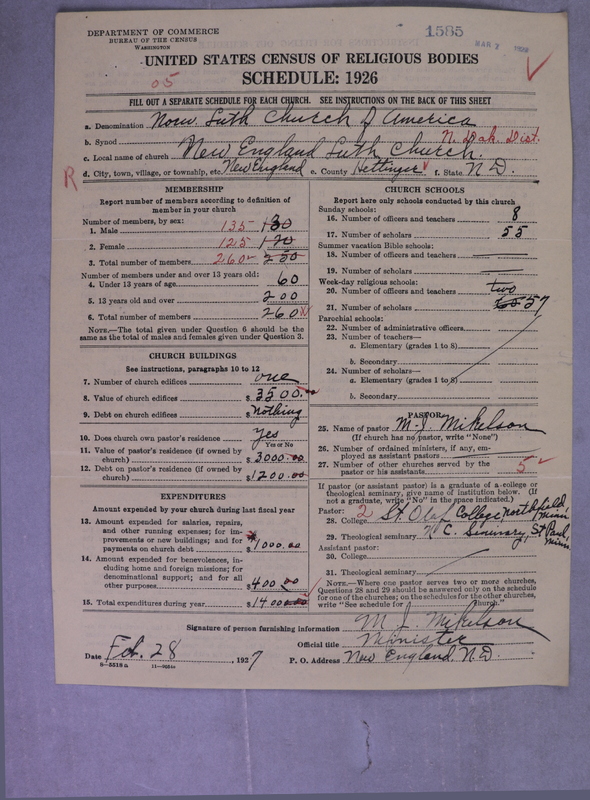 DEPARTMENT OF COMMERCE
BUREAU OF THE CENSUS
WASHINGTON
1585
MAR 7
UNITED STATES CENSUS OF RELIGIOUS BODIES
SCHEDULE: 1926
05
FILL OUT A SEPARATE SCHEDULE FOR EACH CHURCH. SEE INSTRUCTIONS ON THE BACK OF THIS SHEET
a. Denomination Norw Luth Church of America
b. Synod N. Dak. Dist.
c. Local name of church New England Luth Church.
R
d. City, town, village, or township, etc. New England e. County Hettinger f. State N.D.
MEMBERSHIP
Report number of members according to definition of
member in your church
Number of members, by sex:
1. Male 135 130
2. Female 125 120
3. Total number of members. 260 250
Number of members under and over 13 years old:
4. Under 13 years of age 60
5. 13 years old and over 200
6. Total number of members 260
NOTE.—The total given under Question 6 should be
same as the total of males and females given under Question 3.
CHURCH BUILDINGS
See instructions, paragraphs 10 to 12
7. Number of church edifices one
8. Value of church edifices $ 3500.
9. Debt on church edifices $ Nothing
10. Does church own pastor's residence? Yes
Yes or No
11. Value of pastor's residence (if owned by
church) $ 3000.00
12. Debt on pastor's residence (if owned by
church) $ 1200.00
EXPENDITURES
Amount expended by your church during last fiscal year
13. Amount expended for salaries, repairs,
and other running expenses; for im-
provements or new buildings; and for
payments on church debt $ 1000.00
14. Amount expended for benevolences, in-
cluding home and foreign missions; for
denominational support; and for all
other purposes $ 400.00
15. Total expenditures during year $ 1400.00
CHURCH SCHOOLS
Report here only schools conducted by this church
Sunday schools:
16. Number of officers and teachers 8
17. Number of scholars 55
Summer vacation Bible schools:
18. Number of officers and teachers
19. Number of scholars
Week-day religious schools:
20. Number of officers and teachers two
21. Number of scholars 57
Parochial schools:
22. Number of administrative officers
23. Number of teachers—
a. Elementary (grades 1 to 8)
b. Secondary
24. Number of scholars—
a. Elementary (grades 1 to 8)
b. Secondary
PASTOR
25. Name of pastor M. J. Mikelson
(If church has no pastor, write "None")
26. Number of ordained ministers, if any, em-
ployed as assistant pastors
27. Number of other churches served by the
pastor or his assistants 5
If pastor (or assistant pastor) is a graduate of a college or
theological seminary, give name of institution below. (If
not a graduate, write "No" in the space indicated.)
Pastor: 2
28. College St. Olaf College, Northfield, Minn
29. Theological seminary U C. Seminary, St Paul, Minn
Assistant pastor:
30. College
31. Theological seminary
NOTE.—Where one pastor serves two or more churches,
Questions 28 and 29 should be answered only on the schedule
for one of the churches; on the schedules for the other churches,
write "See schedule for Church."
Signature of person furnishing information M. J. Mikelson
Official title Minister
Date Feb. 28, 1927 P. O. Address New England, N.D.
8—5518a 11—9051